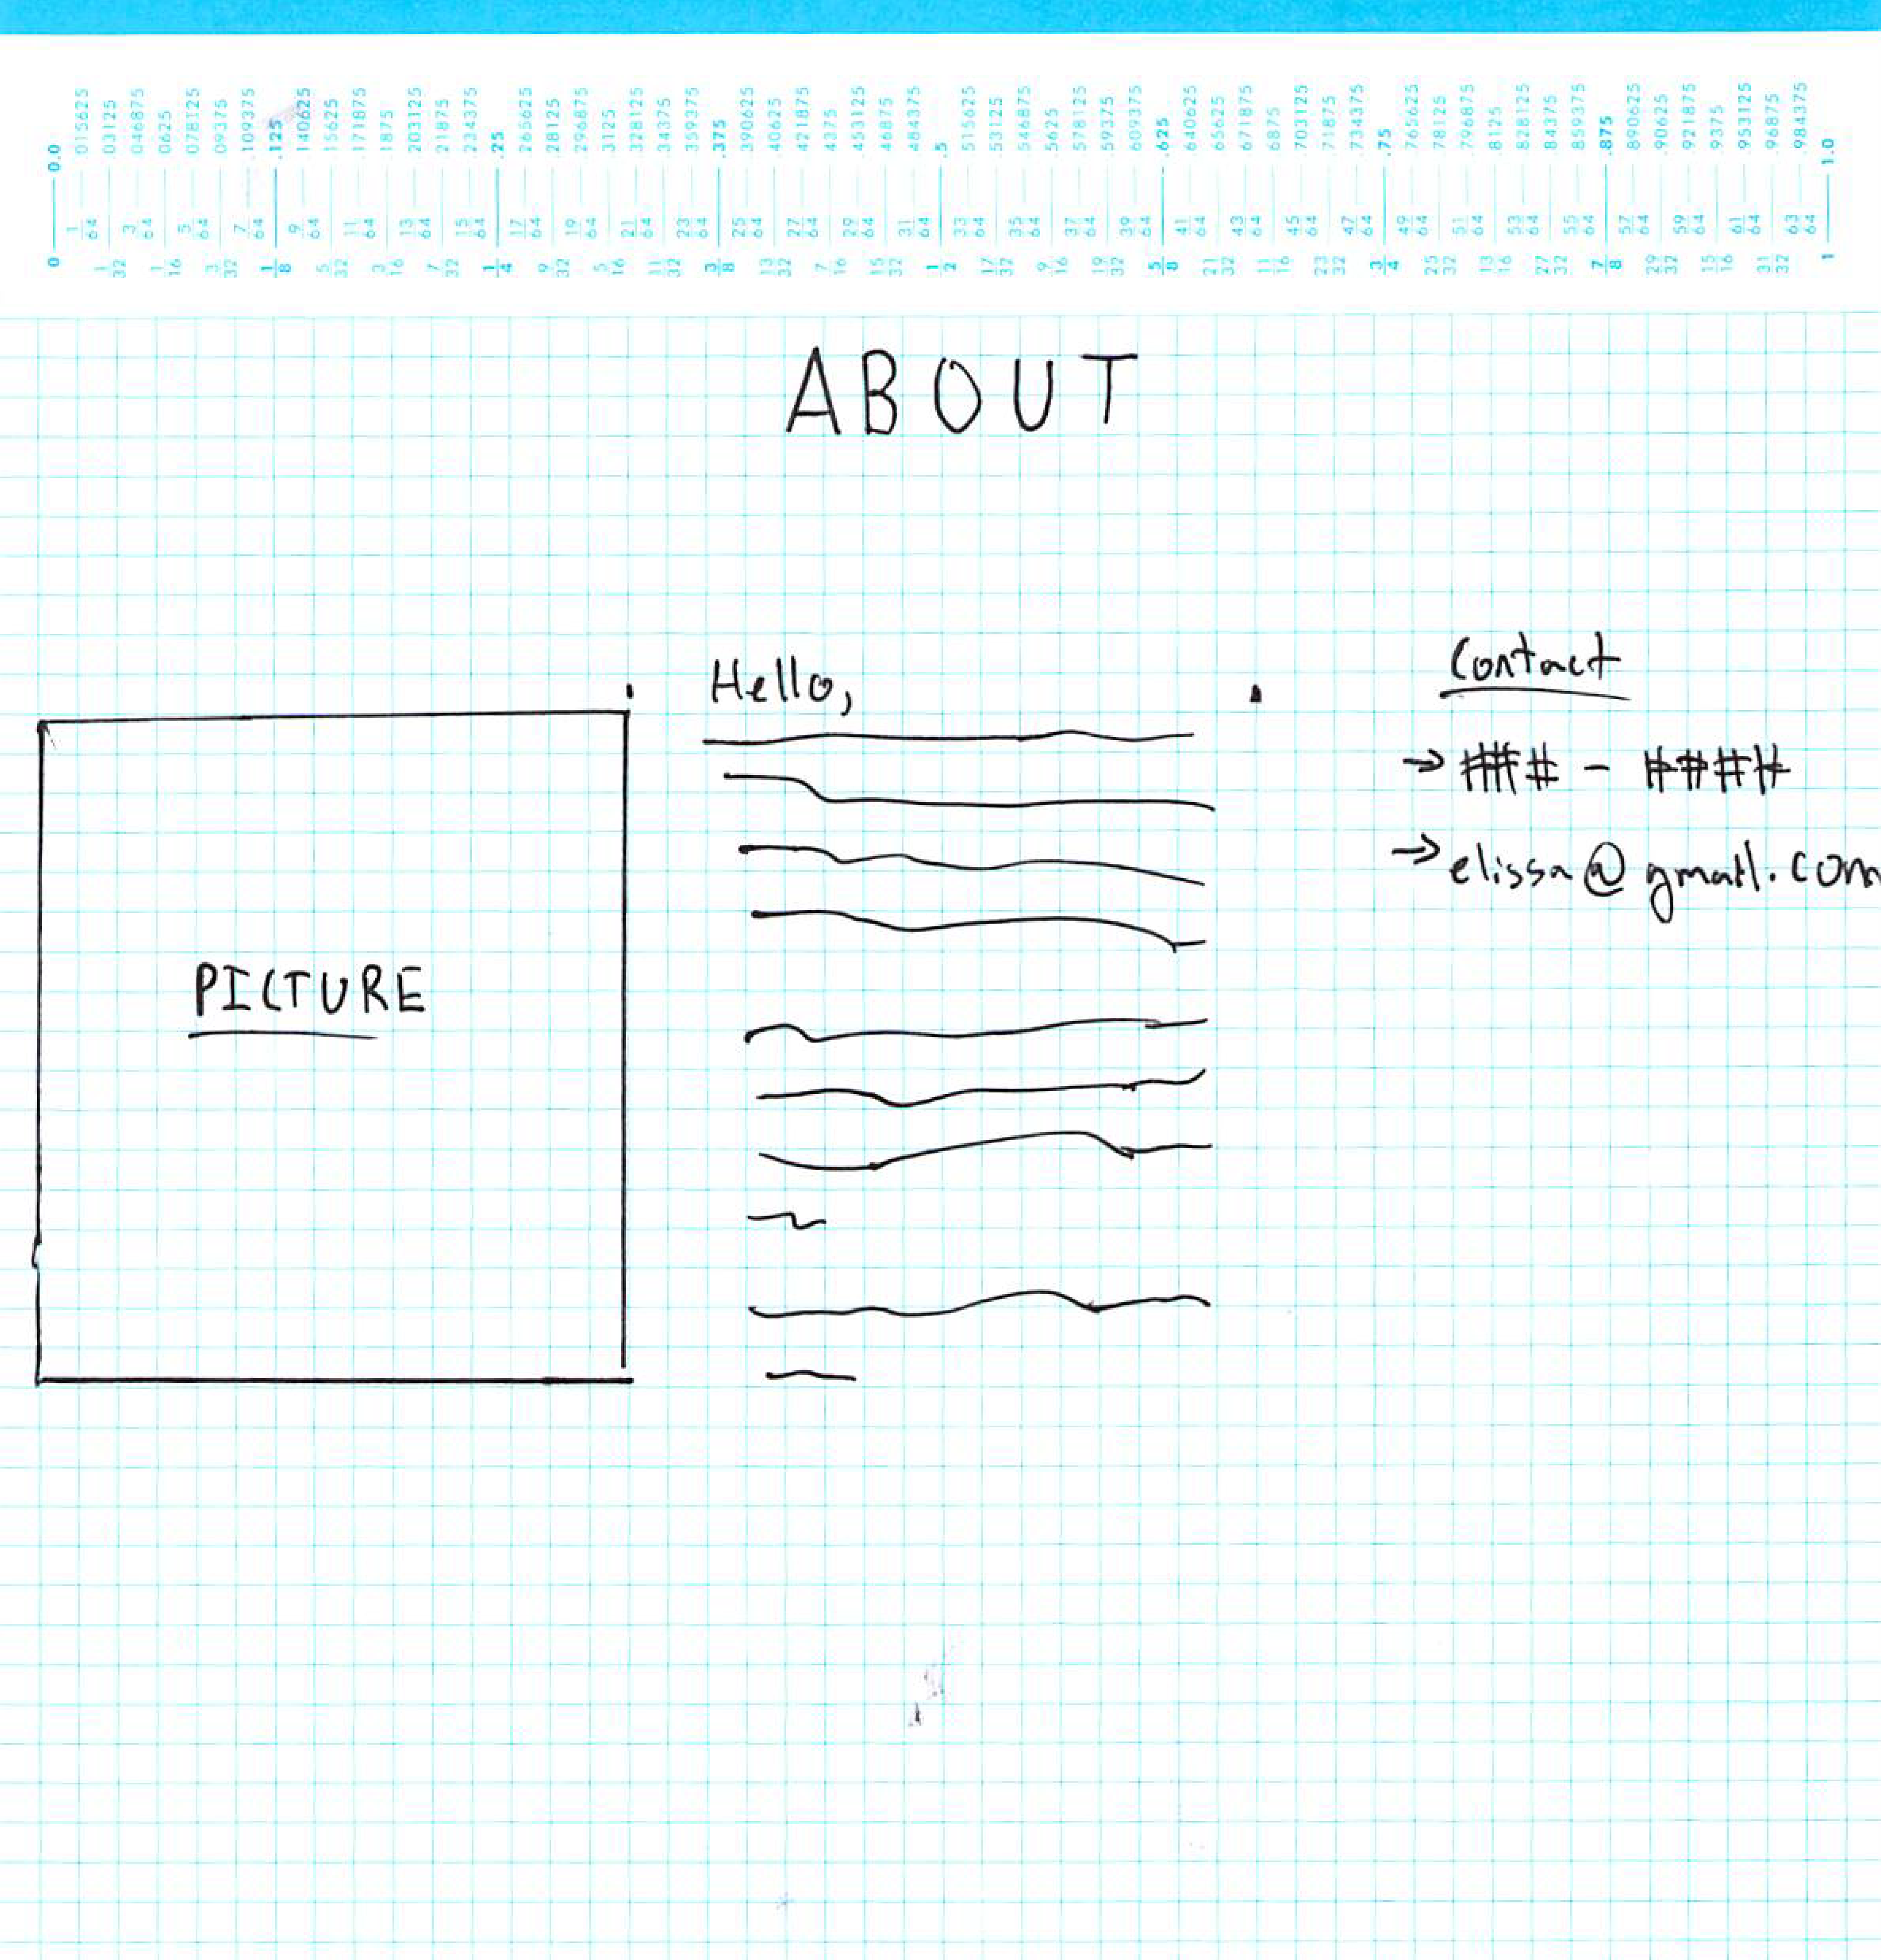 0.0 015625 03125 046875 0625 078125 09375 .109375 .125 140625 15625 171875 1875 203125 21875 234375 .25 265625 28125 296875 3125 328125 34375 359375 .375 390625 40625 421875 4375 453125 46875 484375 .5 515625 .53125 .546875 5625 578125 .59375 609375 .625 640625 65625 671875 6875 .703125 .71875 .734375 .75 765625 78125 .796875 .8125 828125 84375 859375 .875 890625 .90625 .921875 .9375 .953125 .96875 .984375 1.0
1/64 3/64 5/64 7/64 9/64 11/64 13/64 15/64 17/64 19/64 21/64 23/64 25/64 27/64 29/64 31/64 33/64 35/64 37/64 39/64 41/64 43/64 45/64 47/64 49/64 51/64 53/64 55/64 57/64 59/64 61/64 63/64
0 1/32 1/16 3/32 1/8 5/32 3/16 7/32 1/4 9/32 5/16 11/32 3/8 13/32 7/16 15/32 1/2 17/32 9/16 19/32 5/8 21/32 11/16 23/32 3/4 25/32 13/16 27/32 7/8 29/32 15/16 31/32 1
ABOUT
PICTURE
Hello,
Contact
→ ### - ####
→ elissa@gmail.com